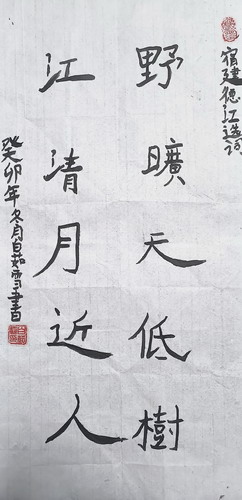 宿建德江选词
野曠天低樹
江清月近人
癸卯年冬月自茹雪書